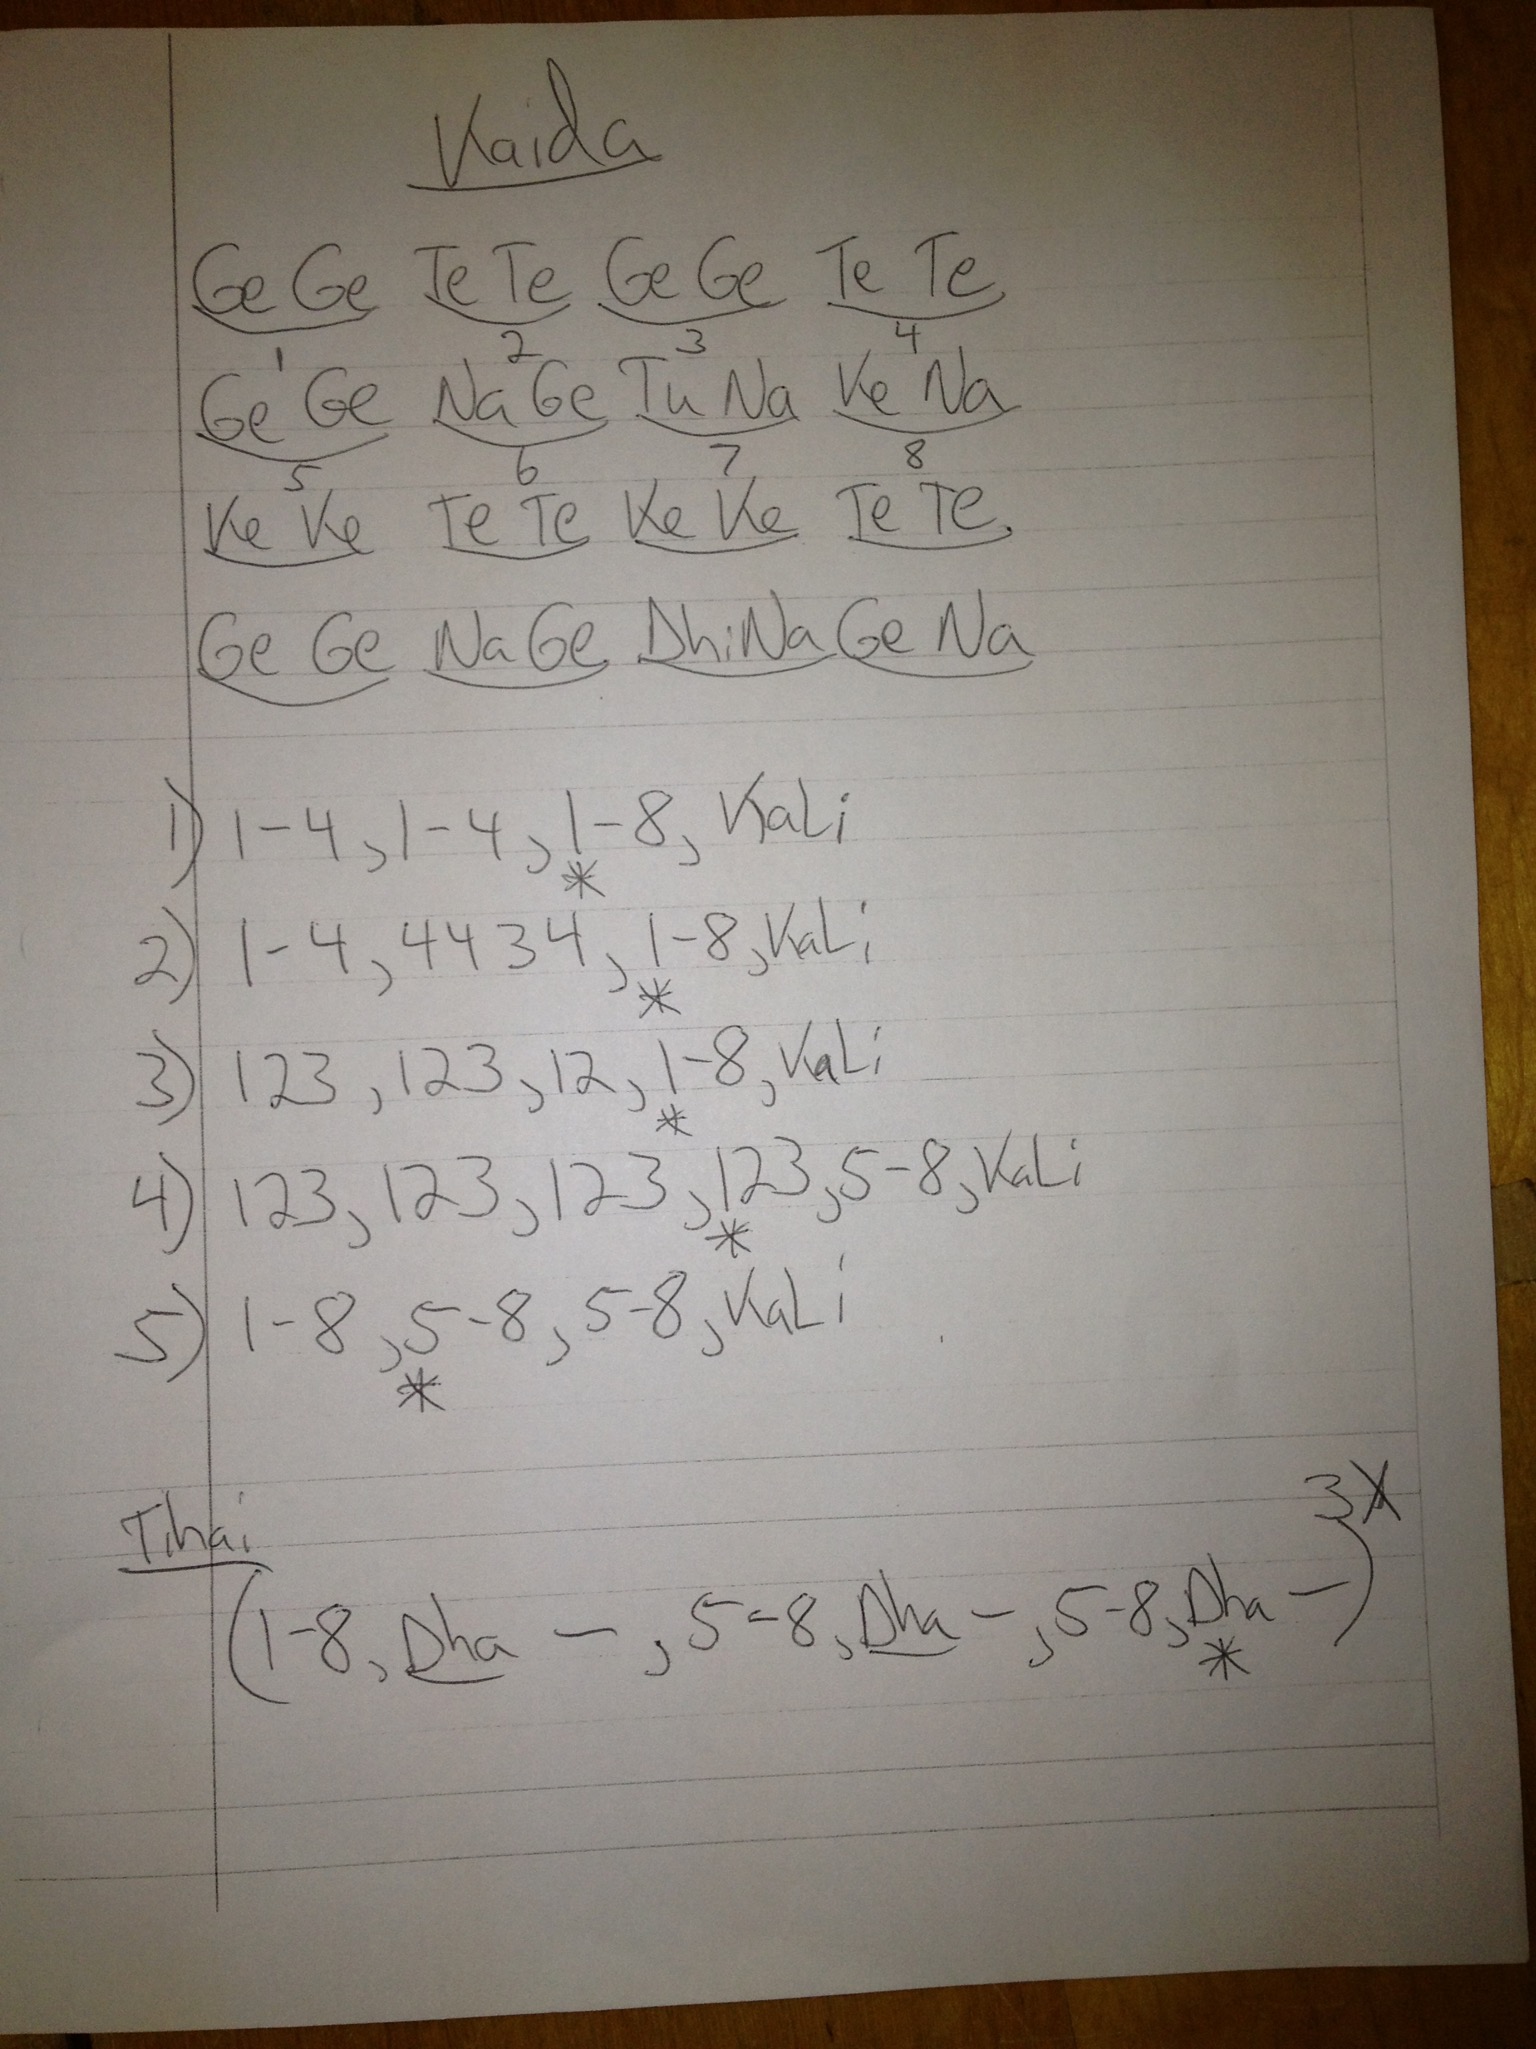 Kaida
Ge Ge Te Te Ge Ge Te Te
1 2 3 4
Ge Ge Na Ge Tu Na Ke Na
5 6 7 8
Ke Ke Te Te Ke Ke Te Te
Ge Ge Na Ge Dhi Na Ge Na
1) 1-4, 1-4, 1-8, KaLi
*
2) 1-4, 4434, 1-8, KaLi
*
3) 123, 123, 12, 1-8, KaLi
*
4) 123, 123, 123, 123, 5-8, KaLi
*
5) 1-8, 5-8, 5-8, KaLi
*
Tihai
(1-8, Dha -, 5-8, Dha -, 5-8, Dha -) 3X
*